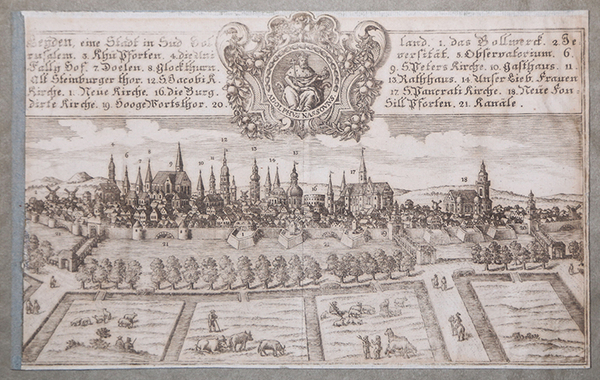 Leyden, eine Stadt in Süd Hol land. 1. das Bollwerck. 2 Je
rusalem. 3. Rhin Pforten. 4. die Uni versität. 5. Observatorium. 6.
Fallig Hof. 7. Doelen. 8. Glockthurn. 9. S Peters Kirche. 10. Gasthaus. 11
Alt Steinburger thor. 12. S Jacobi K. 13 Rathhaus. 14 Unser Lieb. Frauen
Kirche. 1. Neue Kirche. 16. die Burg. 17. S Pancrati Kirche. 18. Neue Fon-
dirte Kirche. 19. Hooge Wortsthor. 20. Sill Pforten. 21. Kanäle.
LUGDUNUM
12
4
6
9
10
13
14
15
16
17
18
21
21
21